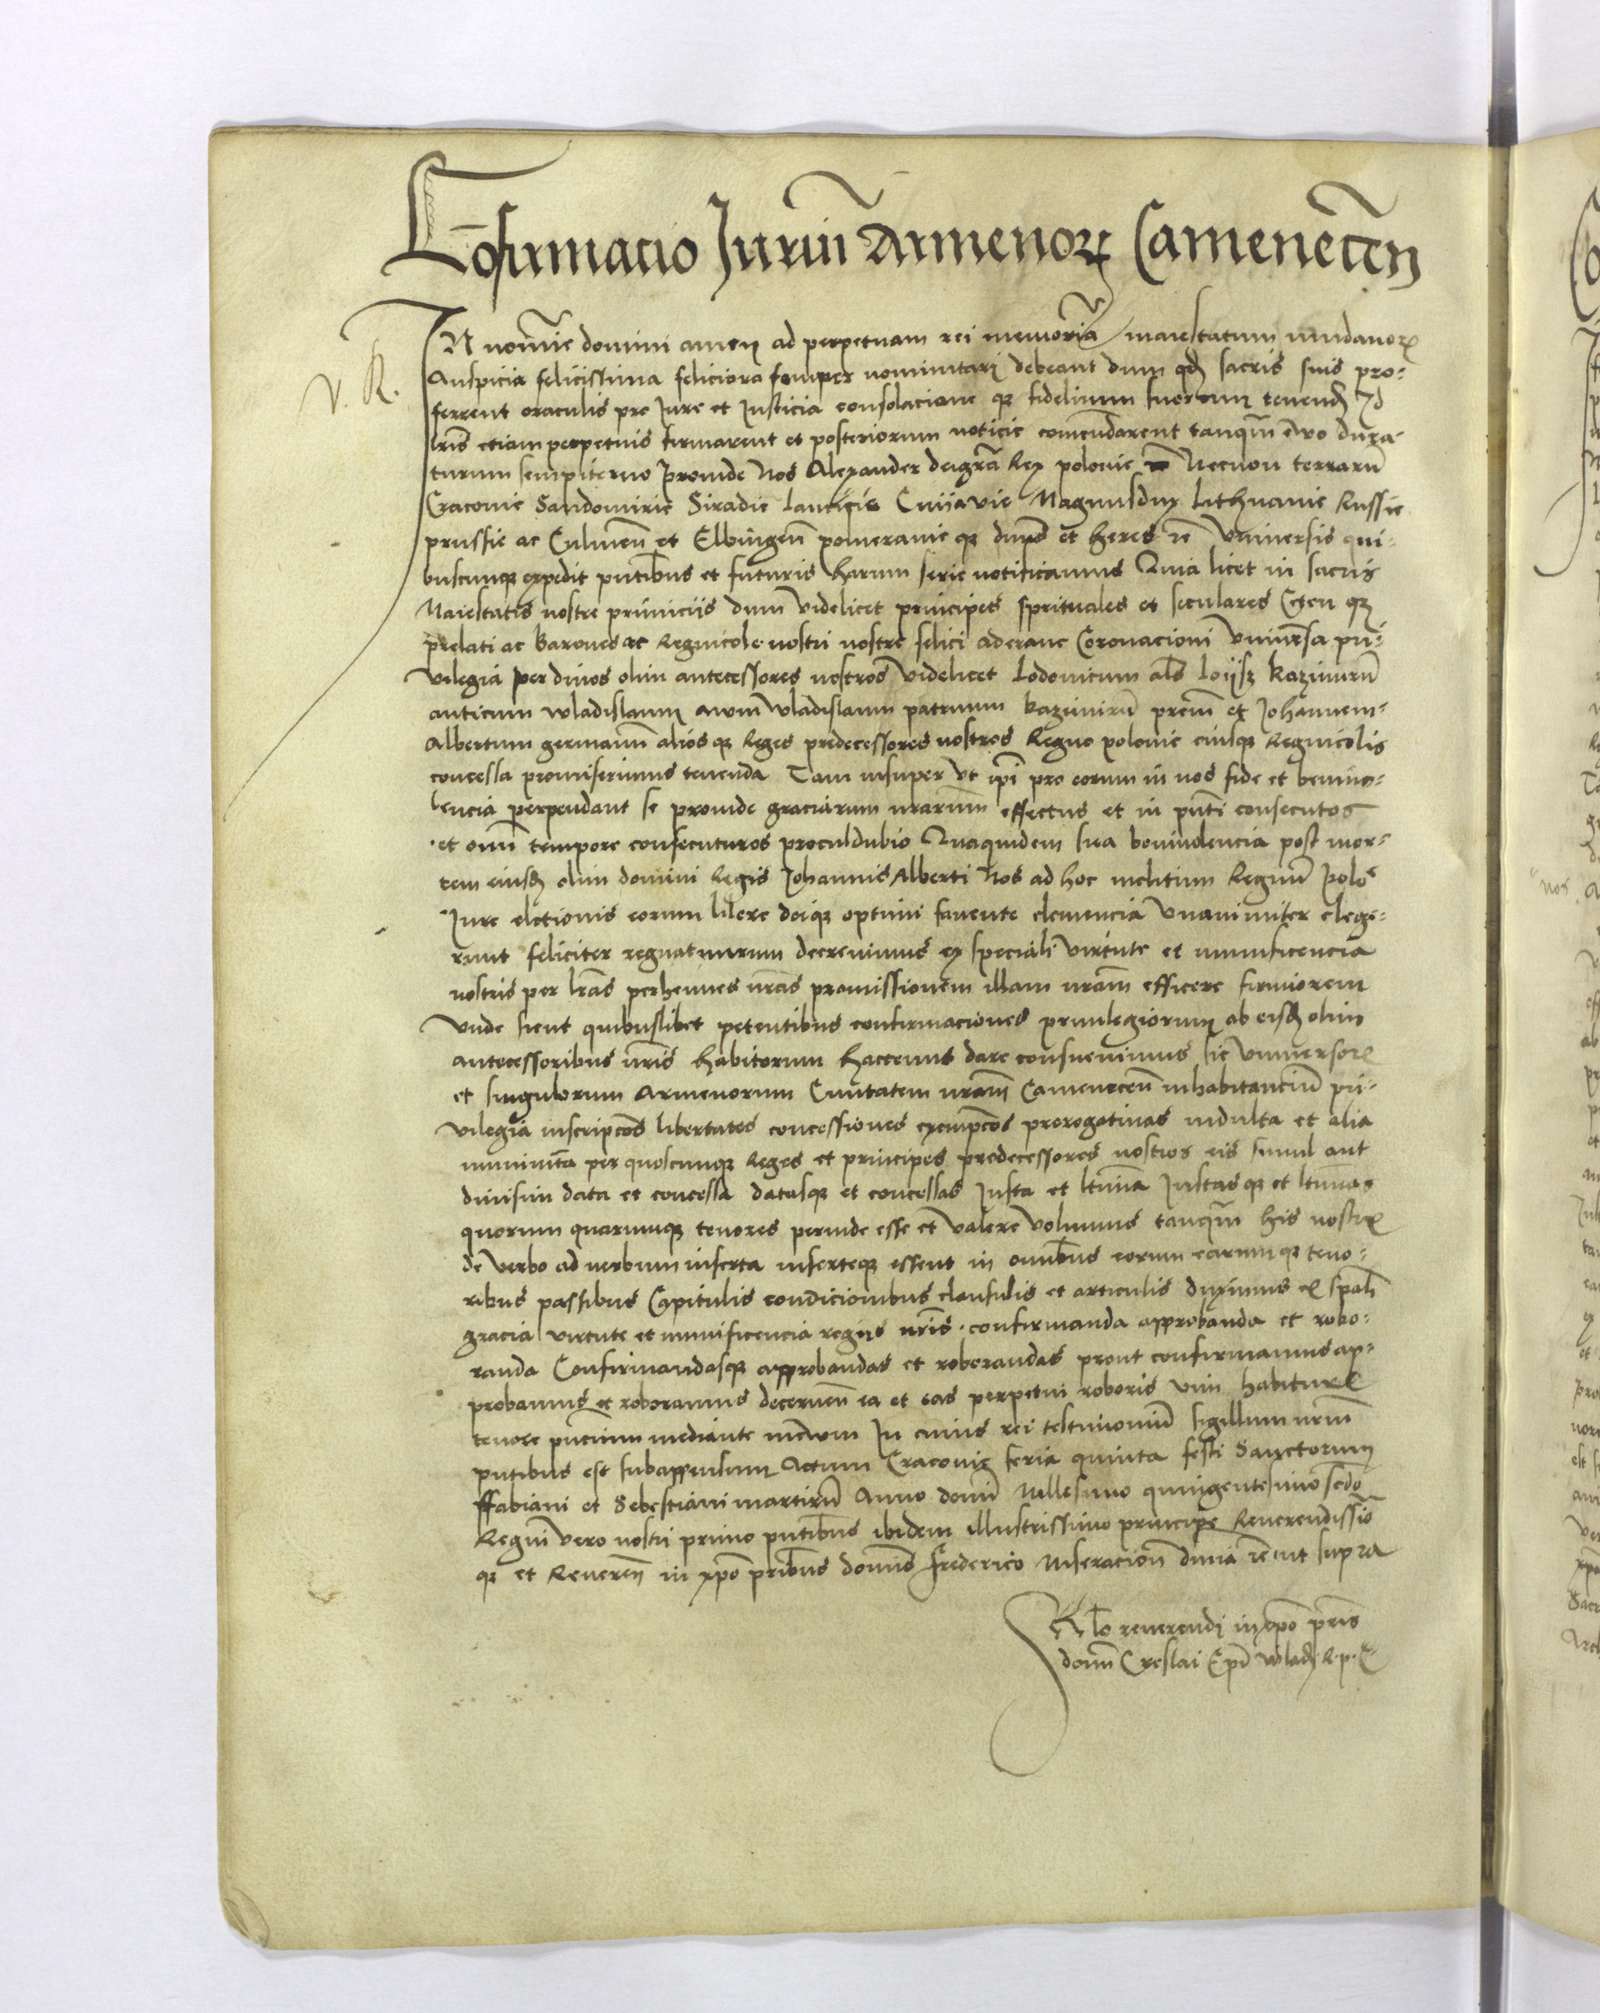 Cōfirmacio Juriū Armenoꝝ Camenecen̄
V. R.
IN nomīe domini amen ad perpetuam rei memoriā maiestatum mūdanoꝝ
Auspicia felicissima feliciora semper nominitari debeant dum qd sacris suis pro-
ferrent oraculis pre Jure et Justicia consolacione qꝫ fidelium suorum tenend Id
lrīs etiam perpetuis firmarent et posteriorum noticie comendarent tanqm̄ evo dura-
turum sempiterno Proinde Nos Alexander dei grā Rex polonie Necnon terrarū
Cracovie Sandomirie Siradie lancicie Cuiiavie Magnusdux Lithvanie Russie
prussie ac Culmen̄ et Elbingen̄ pomeranie qꝫ dn̄us et heres rē Universis qui-
buscunqꝫ expedit pn̄tibus et futuris harum serie notificamus Quia licet in sacris
Maiestatis nostre primiciis dum videlicet principes spirituales et seculares Ceteri qꝫ
prelati ac barones ac Regnicole nostri nostre felici aderant Coronacioni Universa pri-
vilegia per divos olim antecessores nostros videlicet Lodovicum als̄ Loijsz Kazimirū
anticum Wladislaum avum Wladislaum patruum kazimirū prēm et Johannem-
Albertum germanū alios qꝫ Reges predecessores nostros Regno polonie eiusqꝫ Regnicolis
concessa promiserimus tenenda Tam insuper ut ipī pro eorum in nos fide et benivo-
lencia perpendant se proinde graciarum nr̄arum effectus et in pn̄ti consecutos
et om̄i tempore consecuturos proculdubio Quaquidem sua benivolencia post mor-
tem eiusd olim domini Regis Johannis Alberti Nos ad hoc inclitum Regnū Polo^e
Jure electionis eorum libere deiqꝫ optimi favente clemencia Unanimiter elege-
runt feliciter regnaturum decrevimus ex speciali virtute et munificencia
nostris per lrās perhennes nr̄as promissionem illam nr̄am efficere firmiorem
Unde sicut quibuslibet petentibus confirmaciones privilegiorum ab eisd olim
antecessoribus nr̄is habitorum hactenus dare consuevimus sic Universoꝝ
et singulorum Armenorum Civitatem nr̄am Camenecen̄ inhabitanciū pri-
vilegia inscripcōes libertates concessiones exempcōes prerogativas indulta et alia
munimēta per quoscunqꝫ Reges et principes predecessores nostros eis simul aut
divisim data et concessa datasqꝫ et concessas Justa et ltīma Justasqꝫ et ltīmas
quorum quarumqꝫ tenores perinde esse et valere volumus tanqm̄ his nostris
de verbo ad verbum inserta inserteqꝫ essent in omībus eorum earumqꝫ teno-
ribus passibus Capitulis condicionibus clausulis et articulis duximus ex spālī
gracia virtute et munificencia regiis nr̄is confirmanda approbanda et robo-
randa Confirmandasqꝫ approbandas et roborandas prout confirmamus ap-
probamus et roboramus decernen̄ ea et eas perpetui roboris vim habiturꝫ
tenore pn̄cium mediante In cuius rei testimoniū sigillum nr̄um
pn̄tibus est subappensum Actum Cracovie feria quinta festi Sanctorum
ffabiani et Sebestiani martirū Anno domī Millesimo quingentesimo scdo
Regni vero nostri primo pn̄tibus ibidem illustrissimo principe Reverendissīo
qꝫ et Reveren̄ in xpo prībus domīs Frederico Miseracion divīa rē ut supra
Rlo reverendi in xpo prīs
domī Creslai Epī Wlad R. p. C